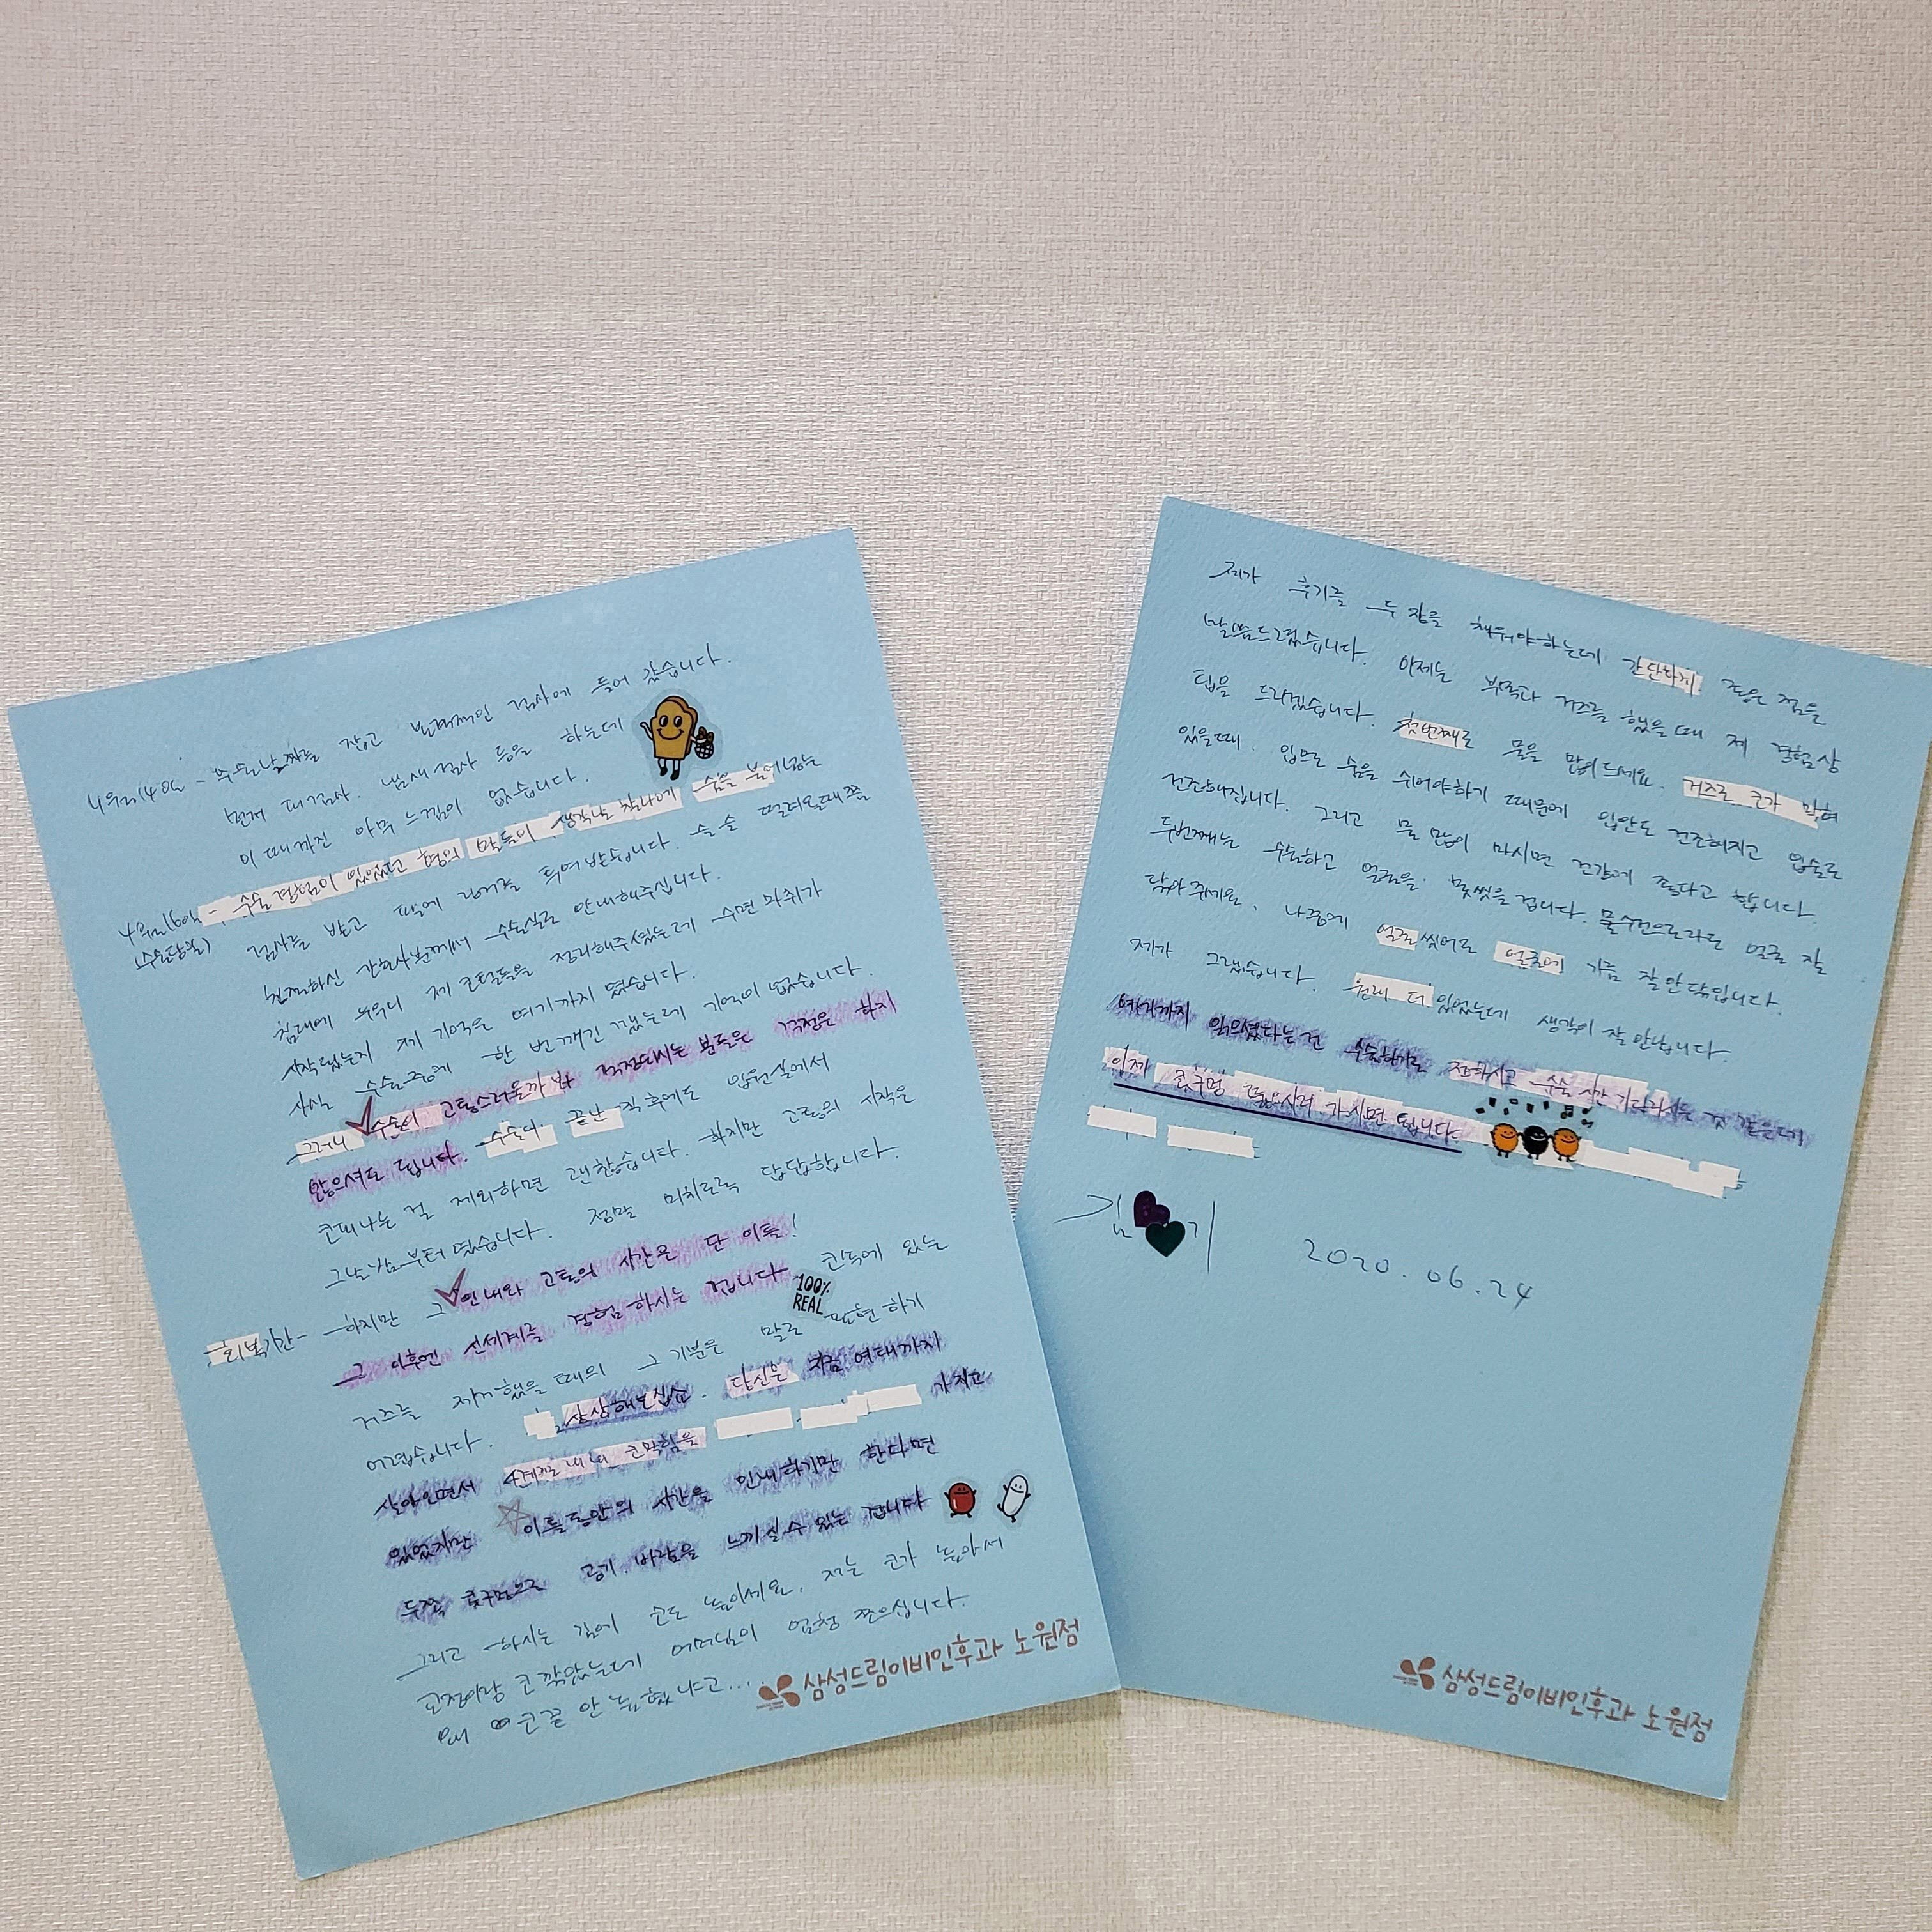 4월 14일 - 수술날짜를 잡고 본격적인 검사에 들어 갔습니다.
먼저 피검사. 냄새검사 등을 하는데
이 때까진 아무 느낌이 없습니다.
4월 16일 - 수술 경험이 있었던 형의 말들이 생각날 찰나에 숨을 불어넣는
(수술당일) 검사를 받고 팔에 링거를 투여 받습니다. 슬슬 떨려올때쯤
친절하신 간호사분께서 수술실로 안내해주십니다.
침대에 누우니 제 코털들을 정리해주셨는데 수면 마취가
시작됐는지 제 기억은 여기까지 였습니다.
사실 수술중에 한 번 깨긴 깼는데 기억이 없습니다.
그러니 수술이 고통스러울까봐 걱정되시는 분들은 걱정은 하지
않으셔도 됩니다. 수술이 끝난 직후에도 입원실에서
코피나는 걸 제외하면 괜찮습니다. 하지만 고통의 시작은
그날 밤부터 였습니다. 정말 미치도록 답답합니다.
회복기간 - 하지만 그 인내와 고통의 시간은 단 이틀!
그 이후엔 신세계를 경험하시는 겁니다
100%
REAL
콧속에 있는
거즈를 제거했을 때의 그 기분은 말로 표현하기
어렵습니다. 상상해보십쇼. 당신은 지금 여태까지
살아오면서 4계절 내내 코막힘을 가지고
있었지만 이틀동안의 시간을 인내하기만 한다면
두쪽 콧구멍으로 공기. 바람을 느끼실 수 있는 겁니다
그리고 하시는 김에 코도 높이세요. 저는 코가 높아서
교정이랑 코 깎았는데 어머님이 엄청 쪼으십니다.
왜 코끝 안 높혔냐고....
삼성드림이비인후과 노원점
제가 후기를 두 장을 채워야하는데 간단하게 좋은 점을
말씀드렸습니다. 이제는 부목과 거즈를 했을때 제 경험상
팁을 드리겠습니다. 첫번째로 물을 많이 드세요. 거즈로 코가 막혀
있을때. 입으로 숨을 쉬어야하기 때문에 입안도 건조해지고 입술도
건조해집니다. 그리고 물 많이 마시면 건강에 좋다고 합니다.
두번째는 수술하고 얼굴을 못씻을겁니다. 물수건으로라도 얼굴 잘
닦아주세요. 나중에 얼굴 씻어도 얼굴에 기름 잘 안닦입니다.
제가 그랬습니다. 원래 더 있었는데 생각이 잘 안납니다.
여기까지 읽으셨다는 건 수술하기로 정하시고 수술 시간 기다리시는 것 같은데
이제 콧구멍 뚫으시러 가시면 됩니다.
김 기
2020.06.24
삼성드림이비인후과 노원점